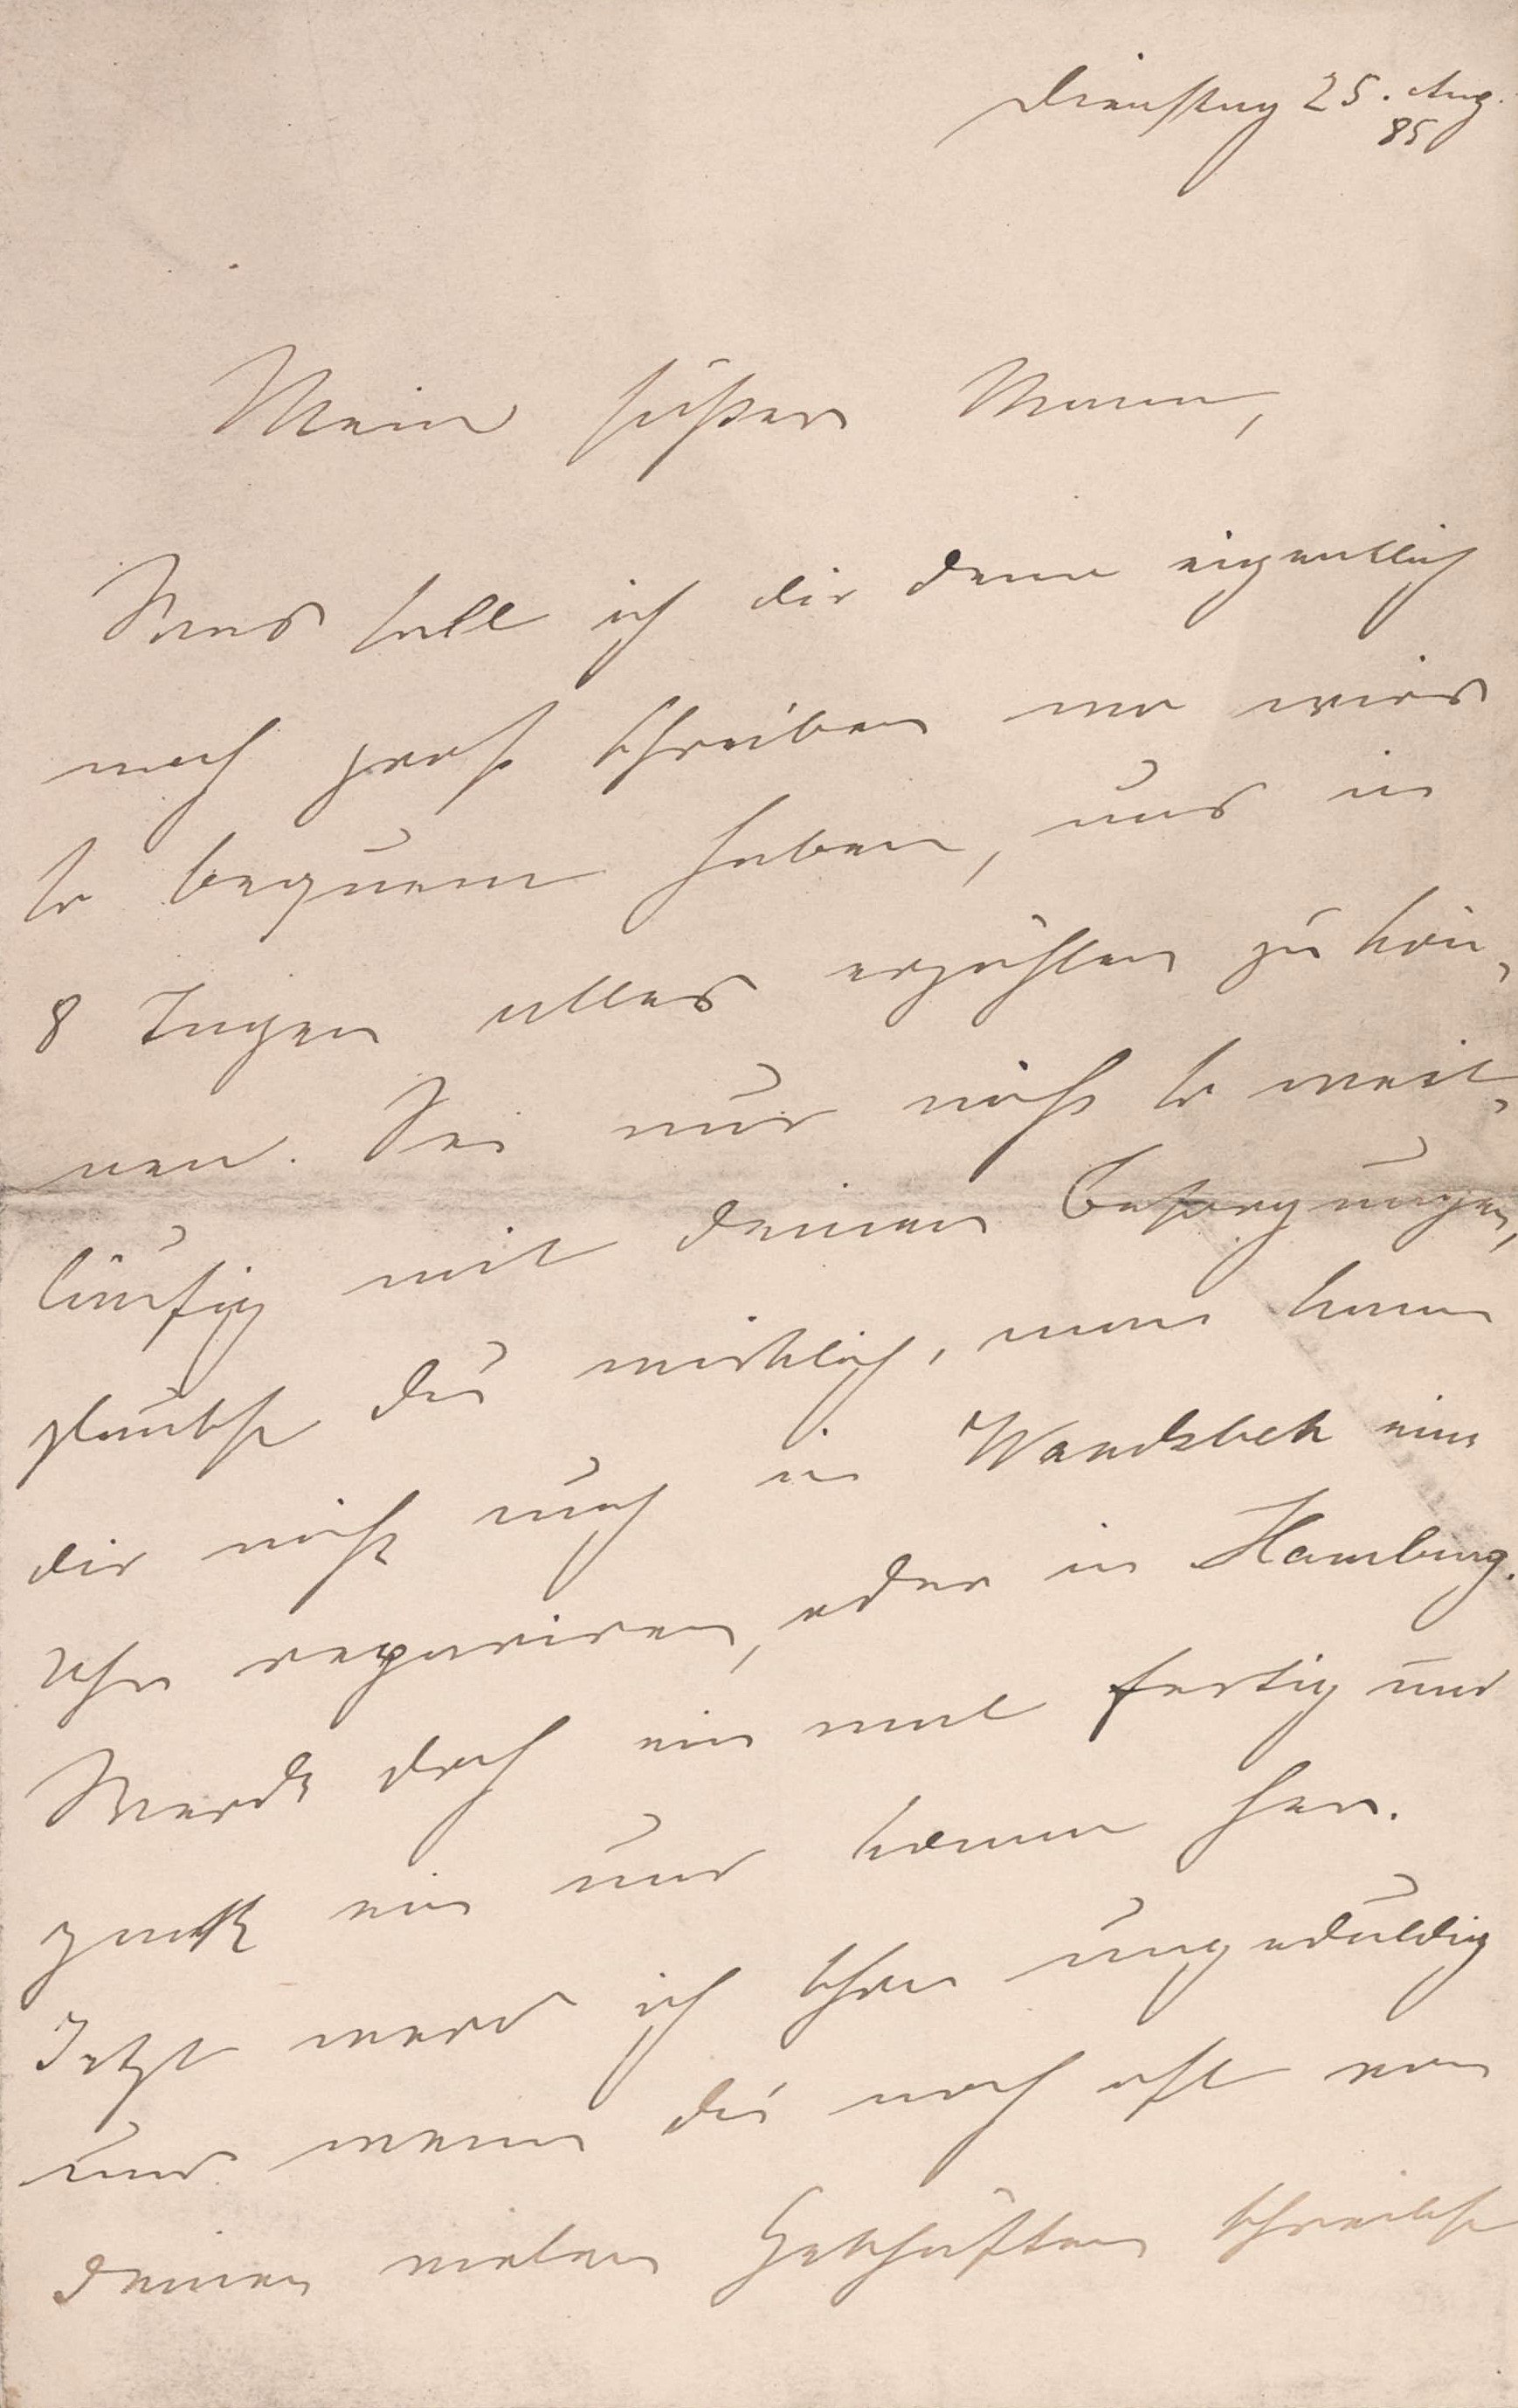 Dienstag 25. Aug.
85
Mein süßer Mann,
Was soll ich dir denn eigentlich
noch groß schreiben wo wirs
so bequem haben, uns in
8 Tagen alles erzählen zu kön-
nen. Sei nur nicht so weit-
läufig mit deinen Besorgungen,
glaubst du wirklich, man kann
dir nicht auch in Wandsbek eine
Uhr repariren, oder in Hamburg.
Werde doch ein mal fertig und
pack ein und komm her.
Jetzt werd ich schon ungeduldig
und wenn du noch oft von
deinen vielen Geschäften schreibst